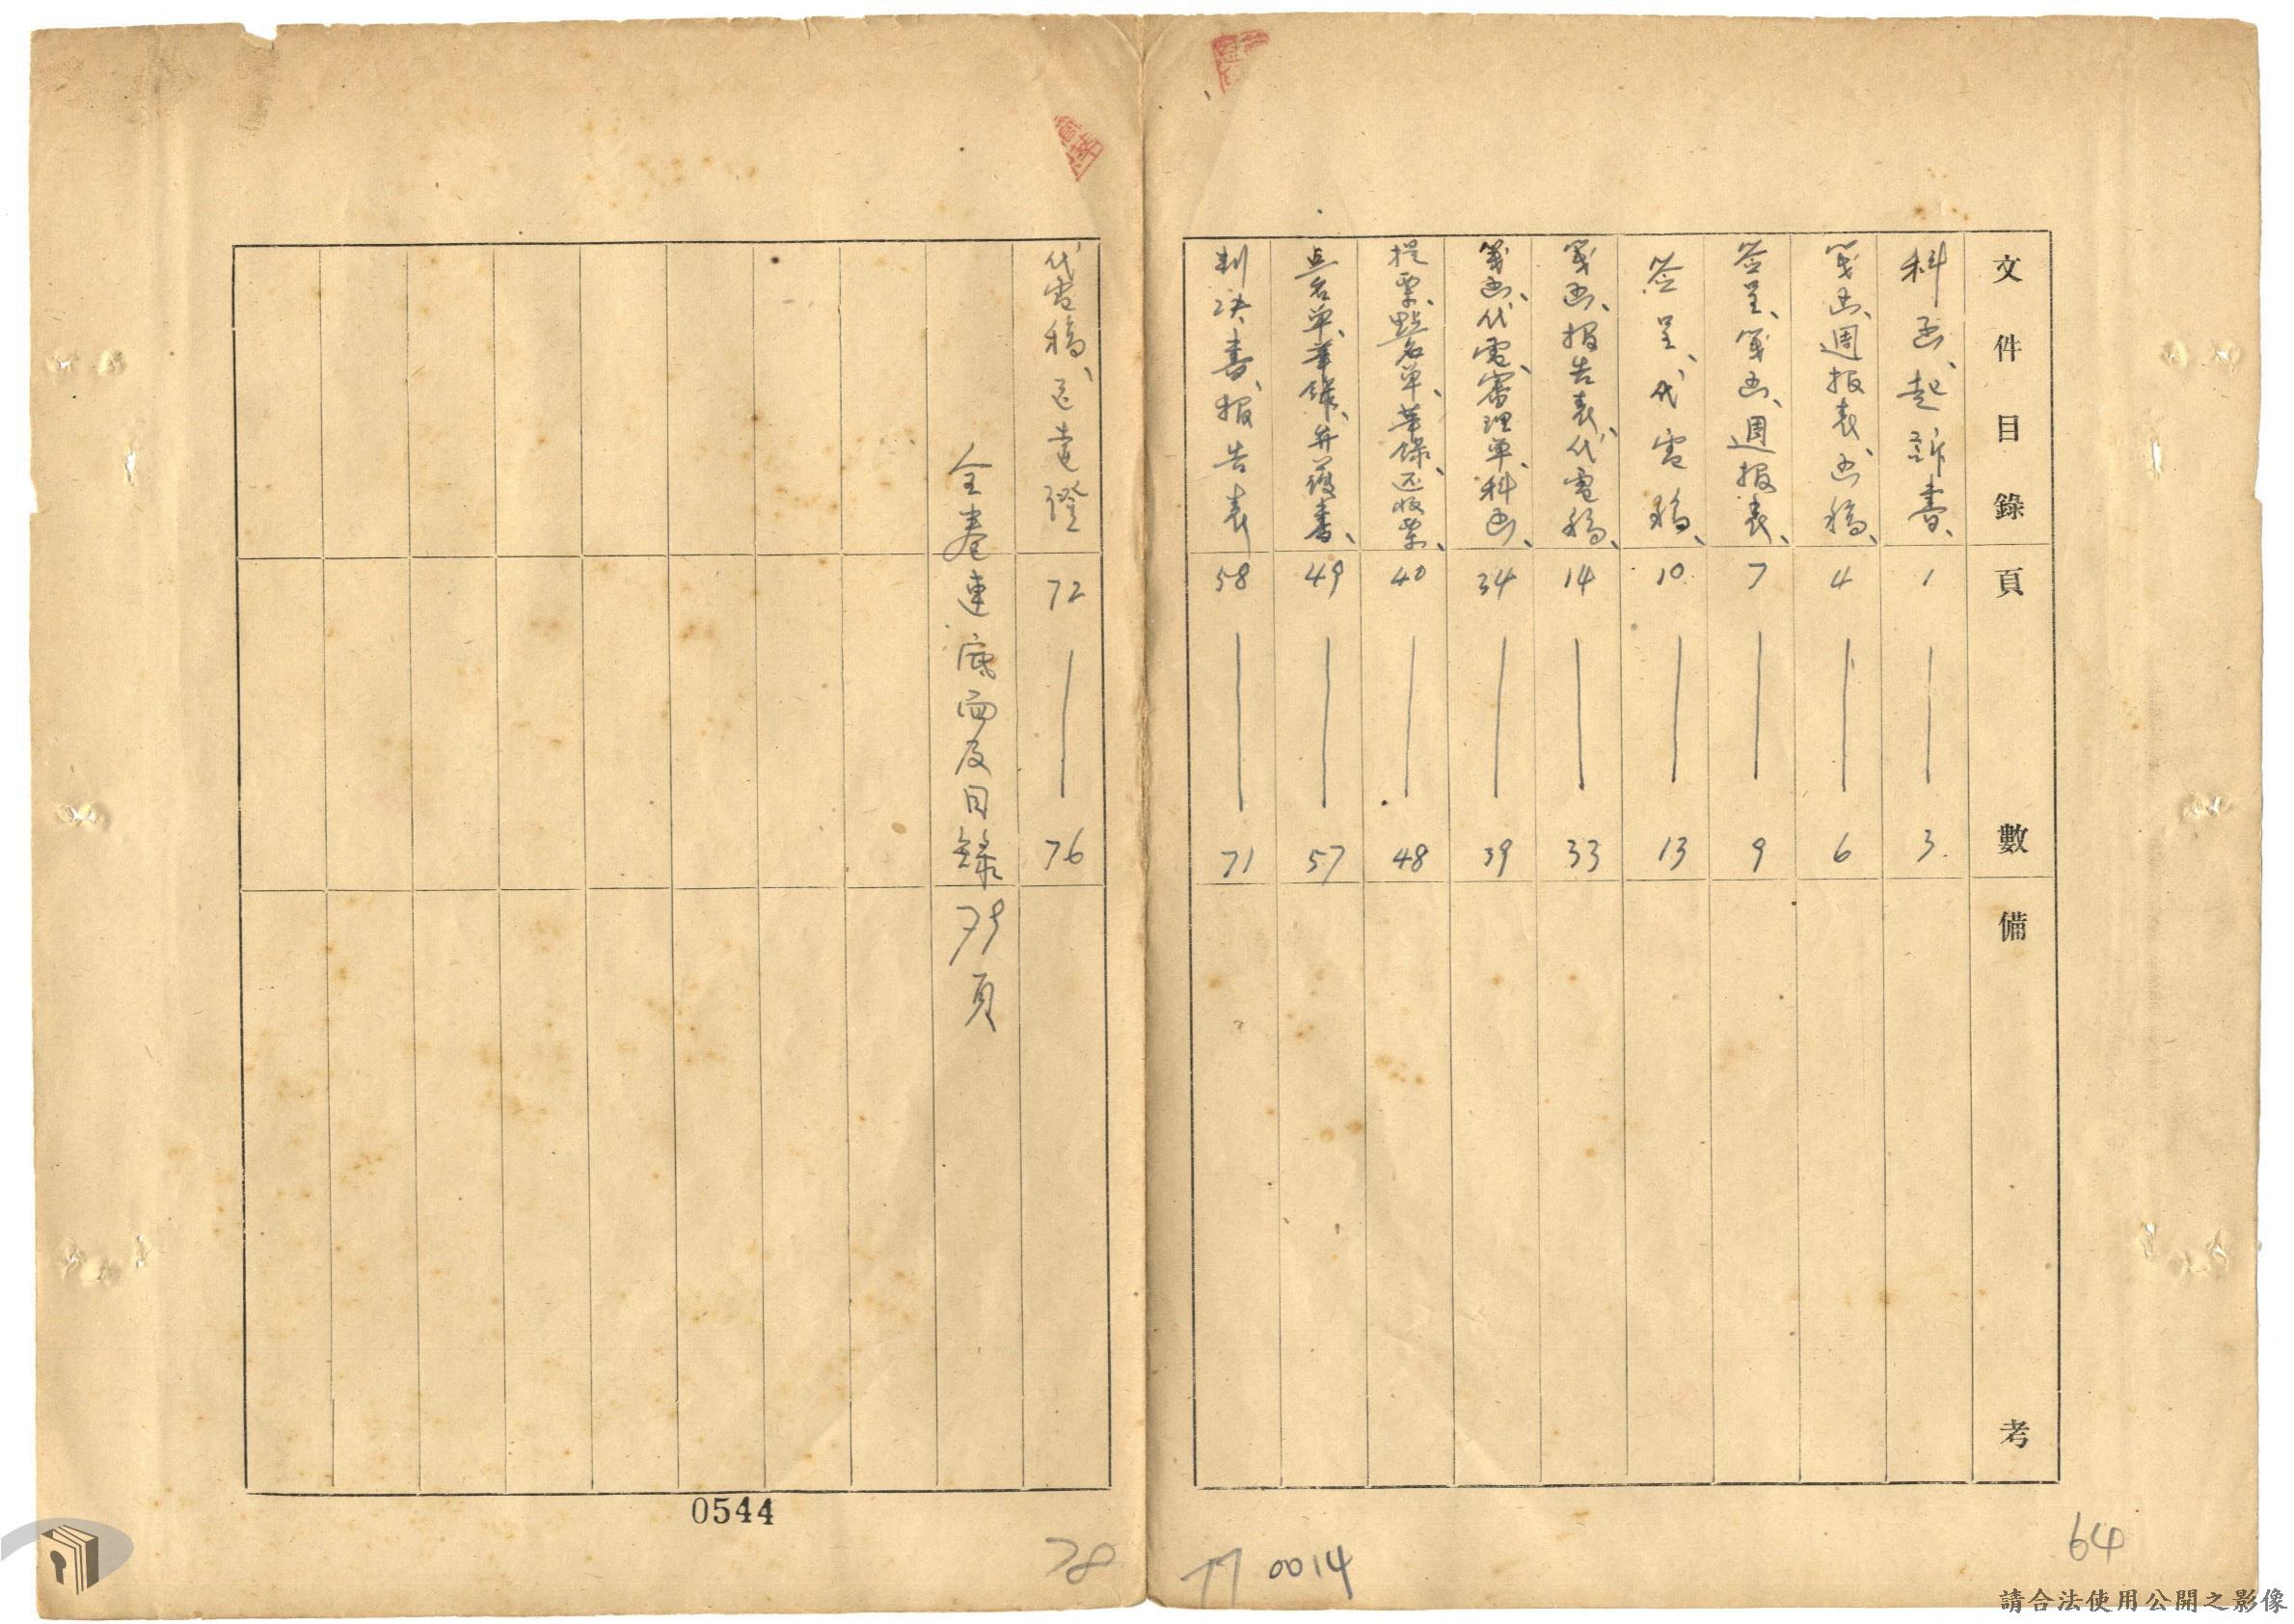 文件目錄 頁數 備考
科函、起訴書、 1 — 3
箋函、週报表、函稿、 4 — 6
签呈、箋函、週報表、 7 — 9
签呈、代電稿、 10 — 13
箋函、报告表、代電稿、 14 — 33
箋函、代電、審理单、科函、 34 — 39
提票、點名单、筆錄、还收票、 40 — 48
点名单、筆錄、弁護書、 49 — 57
判决書、报告表 58 — 71
代電稿、送達證 72 — 76
全卷連底面及目錄79頁
0544
78
77
0014
64
請合法使用公開之影像